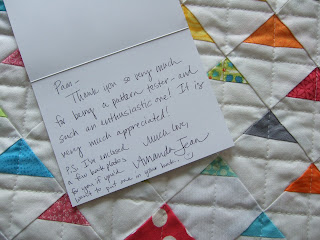 Pam-
Thank you so very much
for being a pattern tester - and
such an enthusiastic one! It is
very much appreciated!
Much love,
Amanda Jean
P.S. I've enclosed
a few book plates
for you if you'd
like to put one in your book. :)